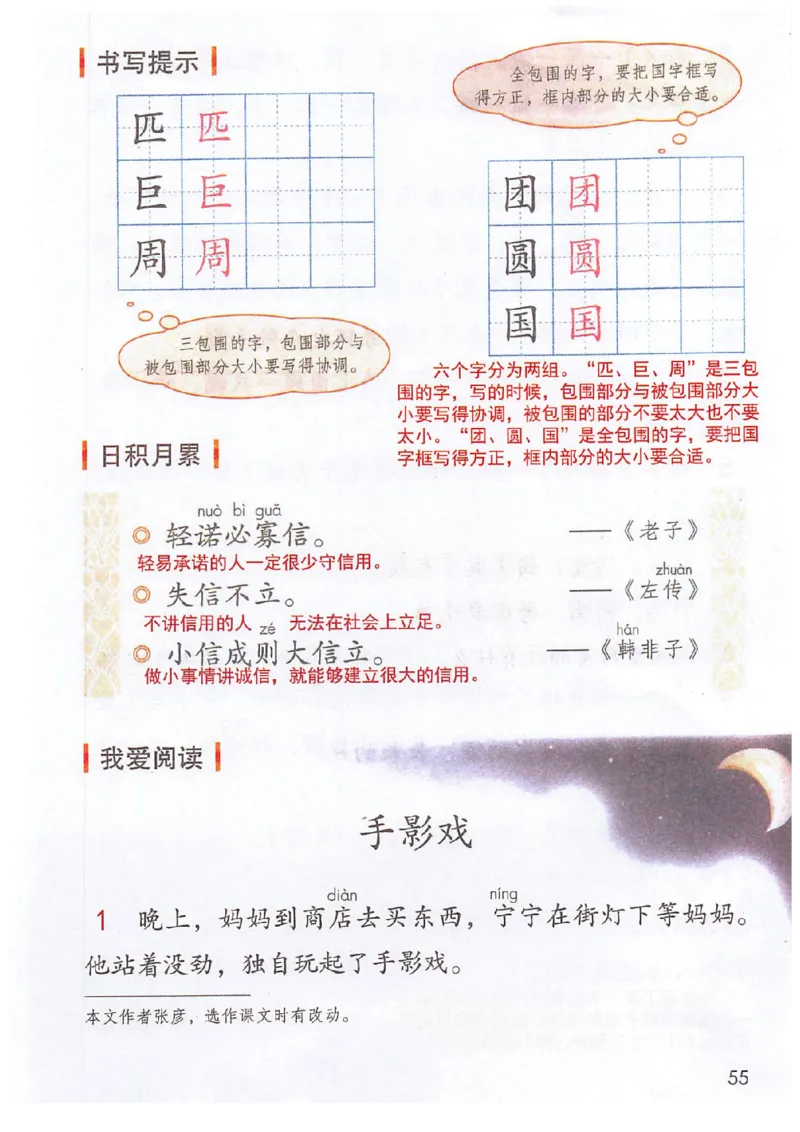 书写提示
全包围的字，要把国字框写
得方正，框内部分的大小要合适。
匹 匹
巨 巨
周 周
团 团
圆 圆
国 国
三包围的字，包围部分与
被包围部分大小要写得协调。
六个字分为两组。“匹、巨、周”是三包
围的字，写的时候，包围部分与被包围部分大
小要写得协调，被包围的部分不要太大也不要
太小。“团、圆、国”是全包围的字，要把国
字框写得方正，框内部分的大小要合适。
日积月累
nuò bì guǎ
◎ 轻诺必寡信。 ——《老子》
轻易承诺的人一定很少守信用。
zhuàn
◎ 失信不立。 ——《左传》
不讲信用的人 无法在社会上立足。
zé hán
◎ 小信成则大信立。 ——《韩非子》
做小事情讲诚信，就能够建立很大的信用。
我爱阅读
手影戏
diàn níng
1 晚上，妈妈到商店去买东西，宁宁在街灯下等妈妈。
他站着没劲，独自玩起了手影戏。
本文作者张彦，选作课文时有改动。
55